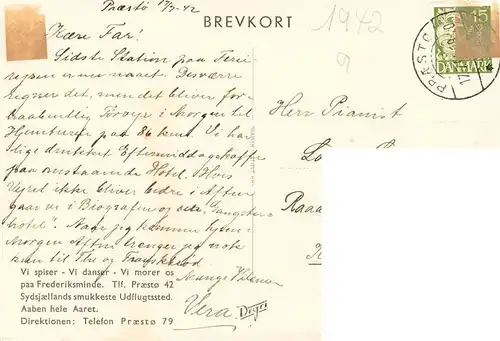 Præstø 17/7-42
BREVKORT
1942
9
15
DANMARK
PRÆSTØ
17
Kære Far!
Sidste Station paa Ferie
rejsen er nu naaet. Desværre
regner det, men det bliver for-
haabentlig Tørvejr i Morgen til
Hjemturen paa 86 km. Vi har
lige drukket Eftermiddagskaffe
paa omstaaende Hotel. Hvis
Vejret ikke bliver bedre i Aften
gaar vi i Biografen og ser „Gangster-
hotel". Naar jeg kommer hjem i
Morgen Aften trænger jeg nok
kun til The og Franskbrød
Mange Hilsner
Vera
Herr Pianist
Vi spiser - Vi danser - Vi morer os
paa Frederiksminde. Tlf. Præstø 42
Sydsjællands smukkeste Udflugtssted.
Aaben hele Aaret.
Direktionen: Telefon Præstø 79